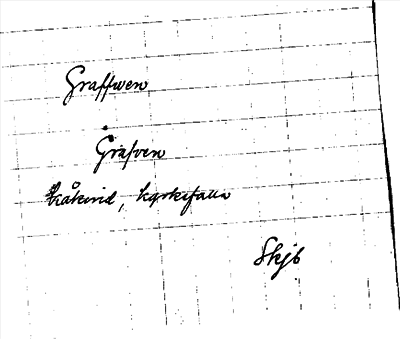 Graffwen
Gräfven
Kåkind, Kyrkefalla
Skjb